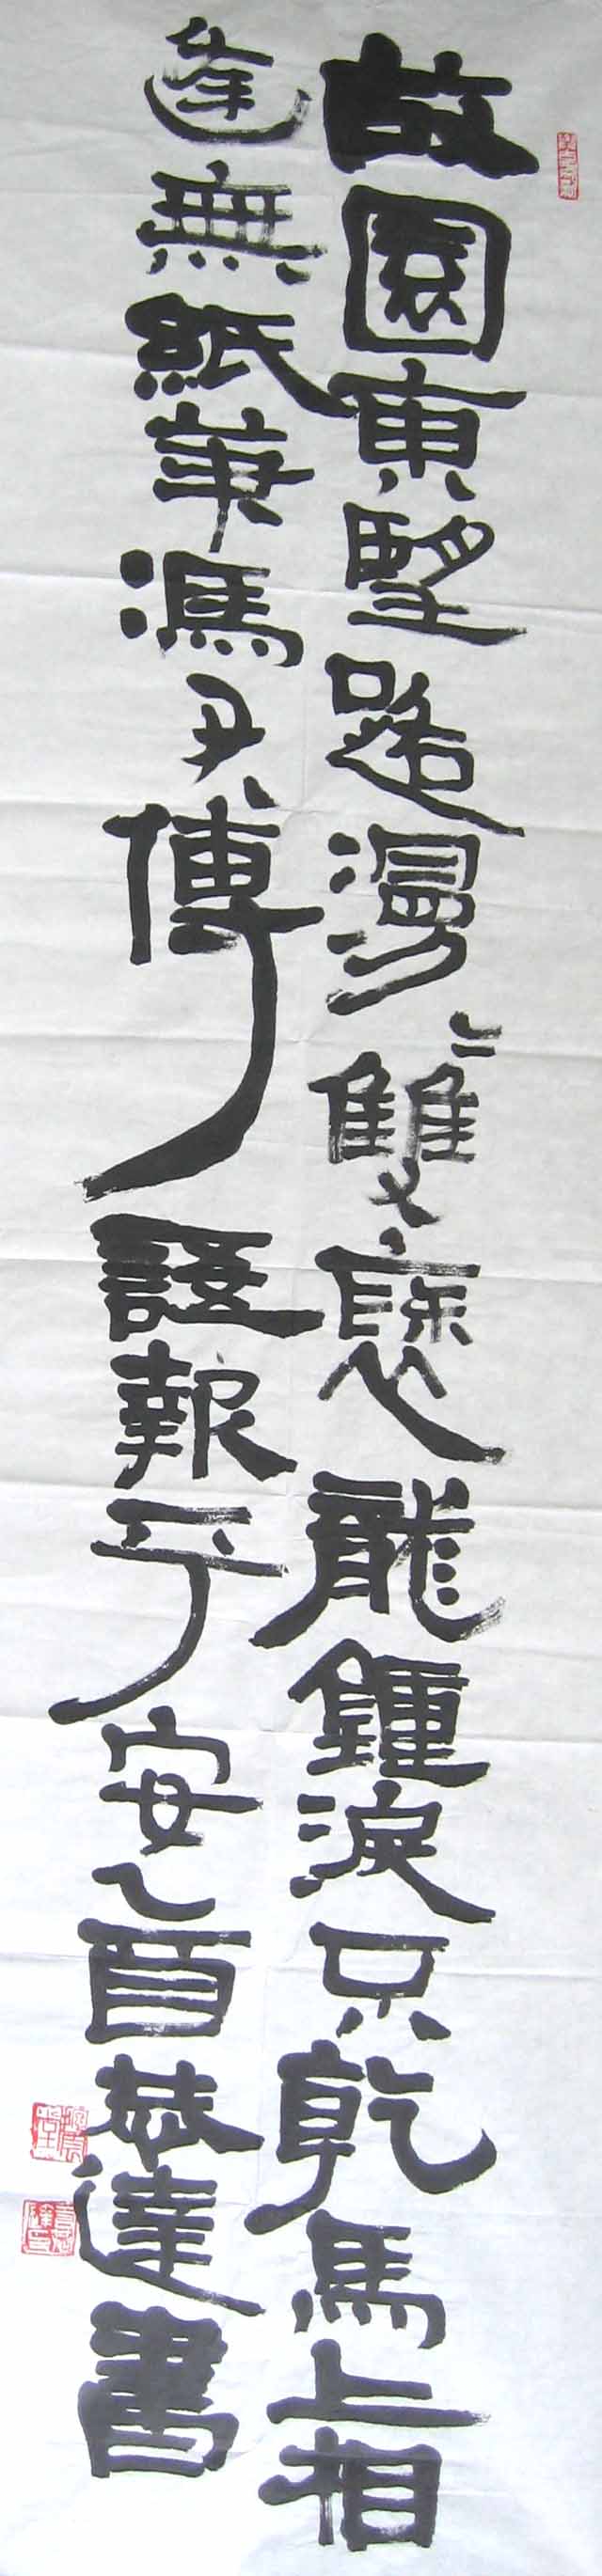 故園東望路漫〻雙褎龍鍾淚不乾馬上相
逢無紙筆馮君傳語報平安乙酉恭達書